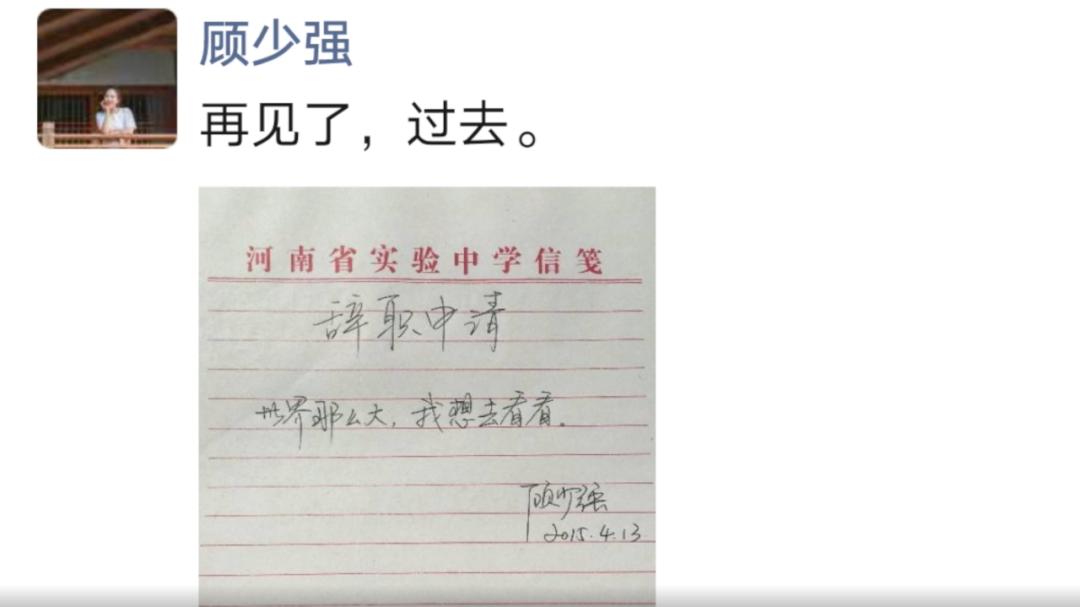 顾少强
再见了，过去。
河南省实验中学信笺
辞职申请
世界那么大，我想去看看。
顾少强
2015.4.13